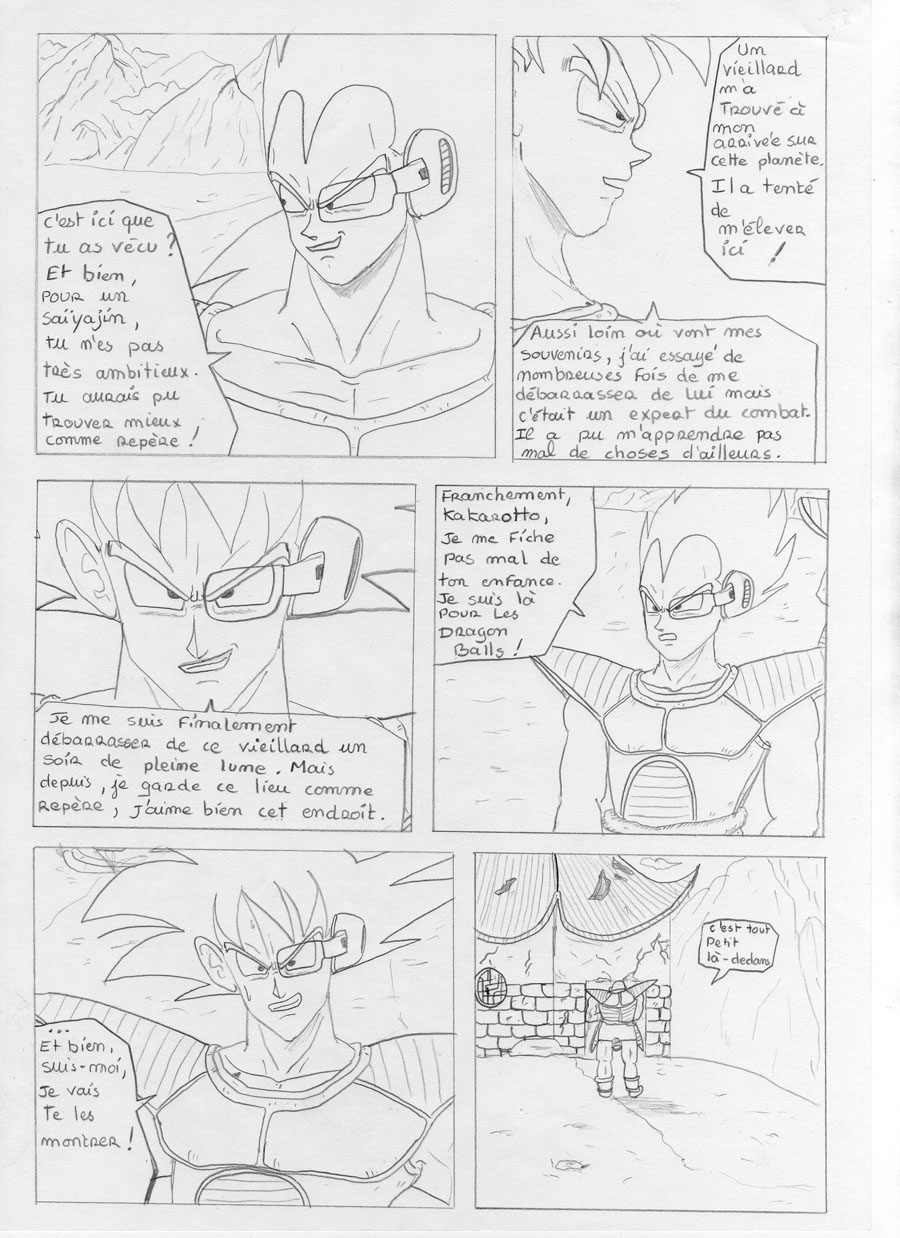 C'est ici que
tu as vécu ?
Et bien,
pour un
saïyajin,
tu n'es pas
très ambitieux.
Tu aurais pu
trouver mieux
comme repère !
Un
vieillard
m'a
trouvé à
mon
arrivée sur
cette planète.
Il a tenté
de
m'élever
ici !
Aussi loin où vont mes
souvenirs, j'ai essayé de
nombreuses fois de me
débarrasser de lui mais
c'était un expert du combat.
Il a pu m'apprendre pas
mal de choses d'ailleurs.
Je me suis finalement
débarrasser de ce vieillard un
soir de pleine lune. Mais
depuis, je garde ce lieu comme
repère, j'aime bien cet endroit.
Franchement,
Kakarotto,
je me fiche
pas mal de
ton enfance.
Je suis là
pour les
Dragon
Balls !
...
Et bien,
suis-moi,
je vais
te les
montrer !
c'est tout
petit
là-dedans